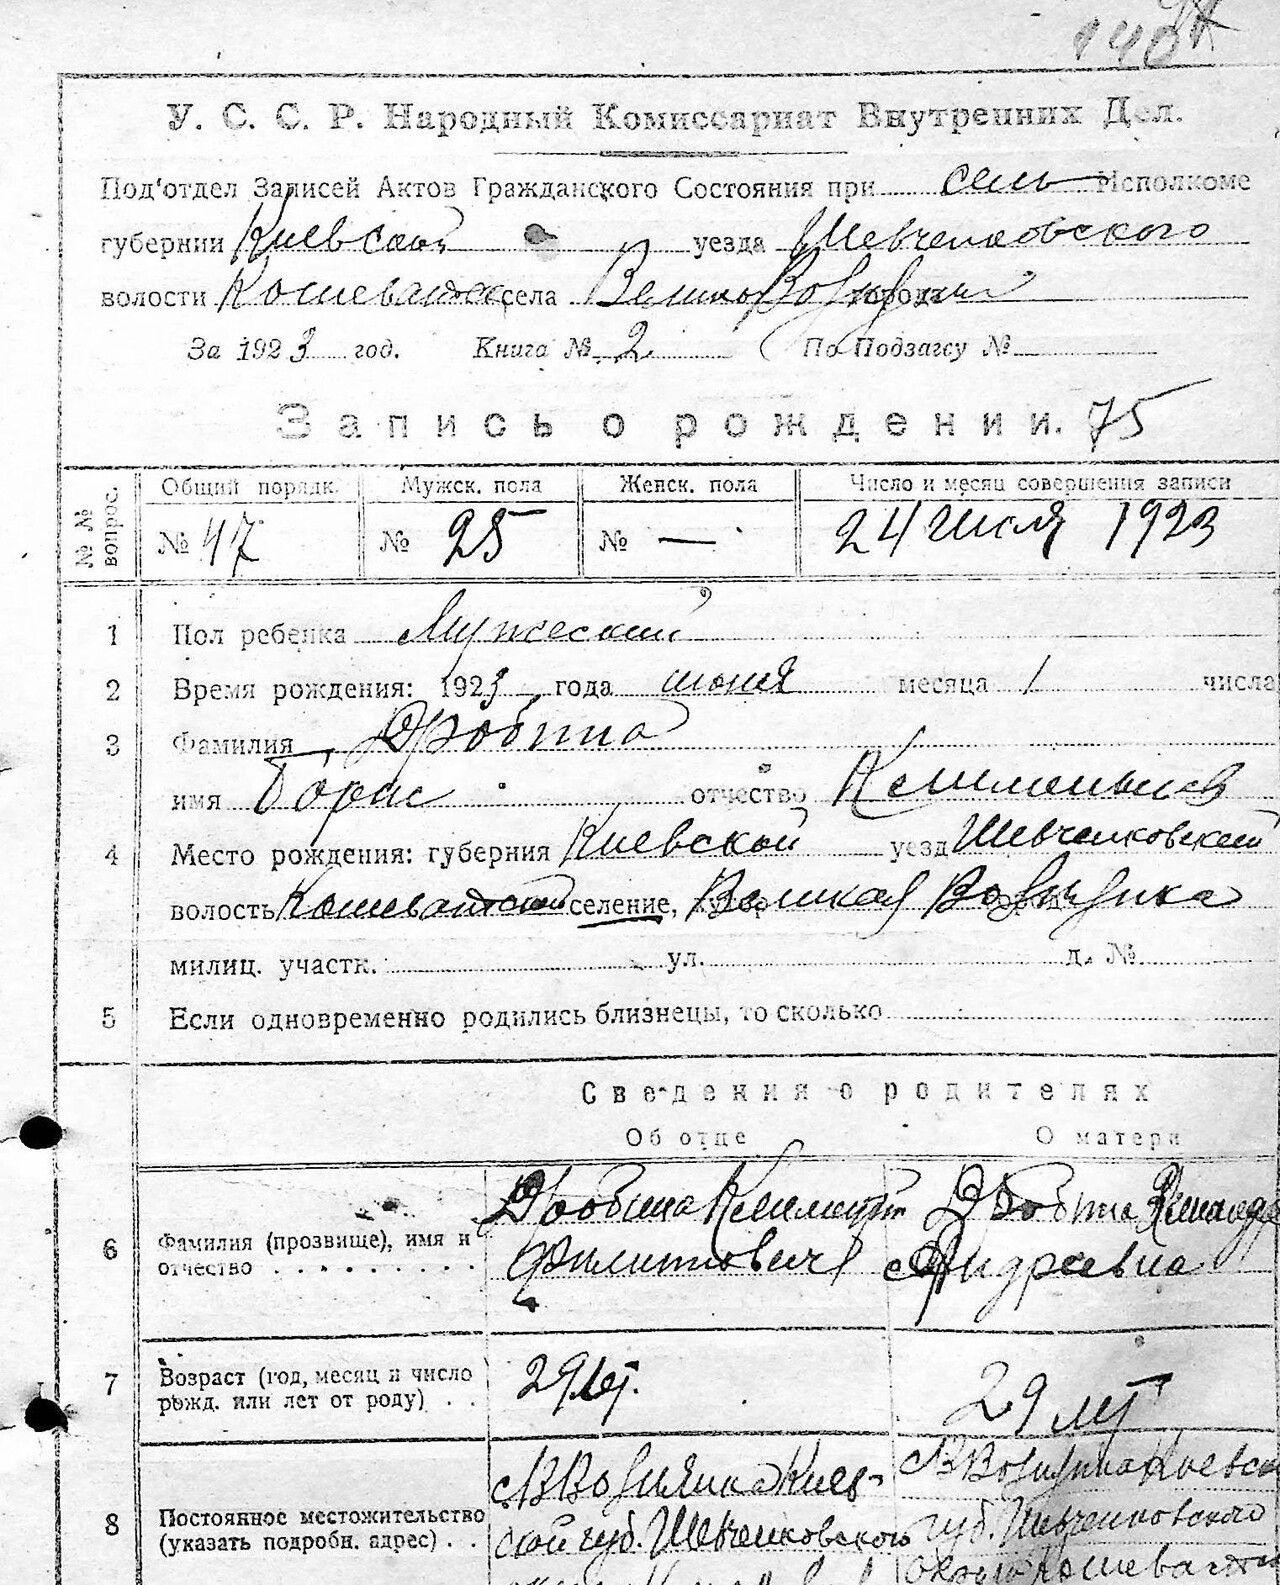 140
У. С. С. Р. Народный Комиссариат Внутренних Дел.
Под'отдел Записей Актов Гражданского Состояния при сель Исполкоме
губернии Киевской уезда Шевченковского
волости Кошеватск села Велико Возн города
За 1923 год. Книга № 2 По Подзагсу №
Запись о рождении. 75
№ № вопрос.
Общий порядк. Мужск. пола Женск. пола Число и месяц совершения записи
№ 47 № 25 № — 24 Июля 1923
1 Пол ребенка Мужеский
2 Время рождения: 1923 года июня месяца 1 числа
3 Фамилия Дробина
имя Борис отчество
4 Место рождения: губерния Киевской уезд Шевченковский
волость Кошеватской селение, хутор Великая
милиц. участк. ул. д. №
5 Если одновременно родились близнецы, то сколько
Сведения о родителях
Об отце О матери
6 Фамилия (прозвище), имя и отчество
Дробина
Филиппович
Дробина
Андреевна
7 Возраст (год, месяц и число рожд. или лет от роду)
29 лет.
29 лет
8 Постоянное местожительство (указать подробн. адрес)
Киев-
ской губ. Шевченковского
губ. Шевченковского